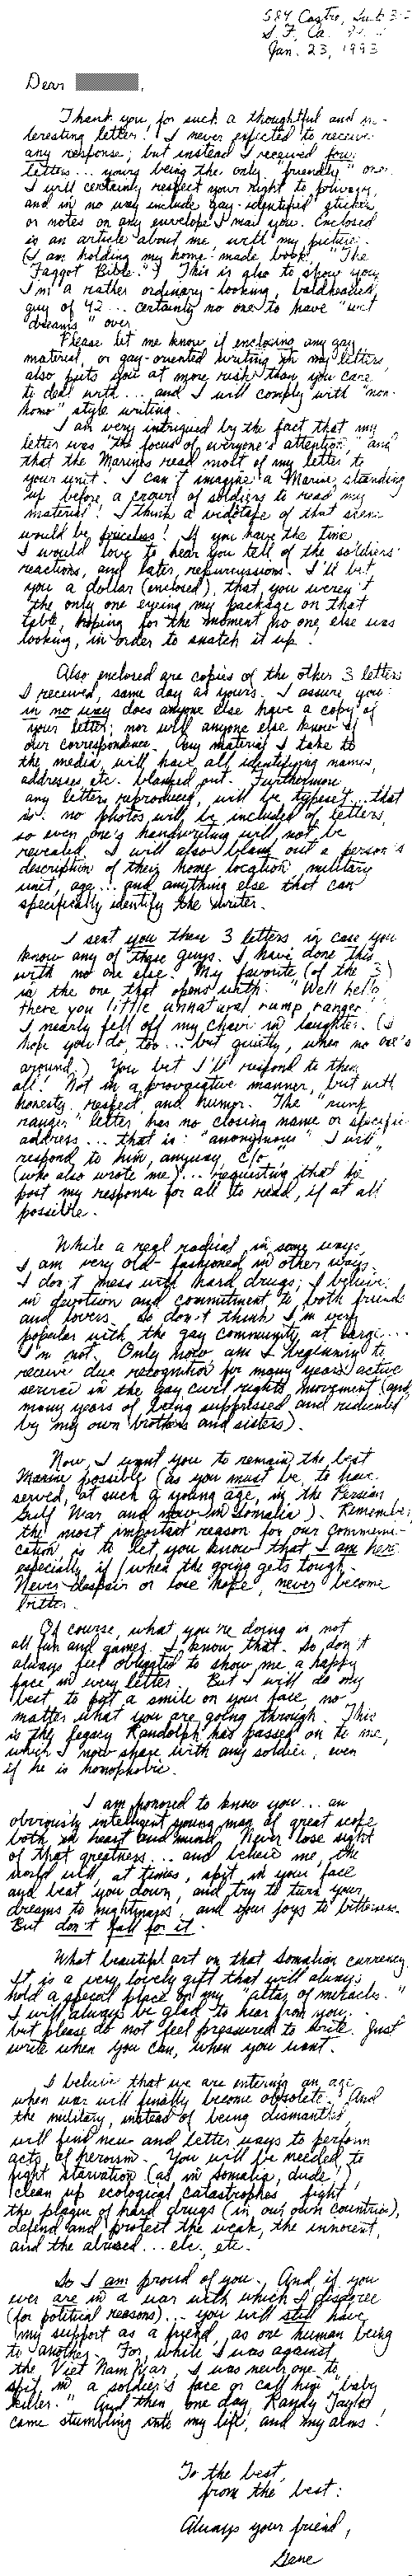 584 Castro, Suite
S.F., Ca.
Jan. 23, 1993
Dear
Thank you for such a thoughtful and in-
teresting letter! I never expected to receive
any response; but instead I received four
letters... yours being the only "friendly" one.
I will certainly respect your right to privacy,
and in no way include gay-identified stickers
or notes on any envelope I mail you. Enclosed
is an article about me, with my picture.
(I am holding my home-made book, "The
Faggot Bible.") This is also to show you
I'm a rather ordinary-looking, baldheaded
guy of 42... certainly no one to have "wet
dreams" over.
Please let me know if enclosing any gay
material, or gay-oriented writing in my letters,
also puts you at more risk than you care
to deal with... and I will comply with "non-
homo" style writing.
I am very intrigued by the fact that my
letter was "the focus of everyone's attention," and
that the Marines read most of my letter to
your unit. I can't imagine a Marine standing
up before a crowd of soldiers to read my
material! I think a videotape of that scene
would be priceless! If you have the time,
I would love to hear you tell of the soldiers'
reactions, and later, repurcussions. I'll bet
you a dollar (enclosed), that you weren't
the only one eyeing my package on that
table, hoping for the moment no one else was
looking, in order to snatch it up!
Also enclosed are copies of the other 3 letters
I received, same day as yours. I assure you:
in no way does anyone else have a copy of
your letter; nor will anyone else know of
our correspondence. Any material I take to
the media, will have all identifying names,
addresses etc. blanked out. Furthermore
any letters reproduced, will be typeset... that
is: no photos will be included of letters,
so even one's handwriting will not be
revealed. I will also blank out a person's
description of their home location, military
unit, age... and anything else that can
specifically identify the writer.
I sent you these 3 letters in case you
know any of those guys. I have done this
with no one else. My favorite (of the 3)
is the one that opens with: "Well hello
there you little unnatural rump ranger."
I nearly fell off my chair in laughter. (I
hope you do, too... but quietly, when no one's
around.) You bet I'll respond to them
all! Not in a provocative manner, but with
honesty, respect, and humor. The "rump
ranger" letter has no closing name or specific
address... that is: "anonymous". I will
respond to him, anyway, c/o
(who also wrote me)... requesting that he
post my response for all to read, if at all
possible.
While a real radical in some ways,
I am very old-fashioned in other ways.
I don't mess with hard drugs; I believe
in devotion and commitment to both friends
and lovers. So don't think I'm very
popular with the gay community at large...
I'm not. Only now am I beginning to
receive due recognition for many years active
service in the gay civil rights movement (and
many years of being suppressed and ridiculed
by my own brothers and sisters).
Now, I want you to remain the best
Marine possible (as you must be, to have
served, at such a young age, in the Persian
Gulf War and now in Somalia). Remember,
the most important reason for our communi-
cation is to let you know that I am here
especially if/when the going gets tough.
Never despair or lose hope, never become
bitter.
Of course, what you're doing is, not
all fun and games. I know that. So don't
always feel obligated to show me a happy
face in every letter. But I will do my
best to put a smile on your face, no
matter what you are going through. This
is the legacy Randolph has passed on to me,
which I now share with any soldier, even
if he is homophobic.
I am honored to know you... an
obviously intelligent young man of great scope
both in heart and mind. Never lose sight
of that greatness... and believe me, the
world will, at times, spit in your face
and beat you down, and try to turn your
dreams to nightmares, and your joys to bitterness.
But don't fall for it.
What beautiful art on that Somalian currency.
It is a very lovely gift that will always
hold a special place on my "altar of miracles."
I will always be glad to hear from you.
but please do not feel pressured to write. Just
write when you can, when you want.
I believe that we are entering an age
when war will finally become obsolete. And
the military, instead of being dismantled,
will find new and better ways to perform
acts of heroism. You will be needed to
fight starvation (as in Somalia, dude!),
clean up ecological catastrophes, fight
the plague of hard drugs (in our own countries),
defend and protect the weak, the innocent,
and the abused... etc. etc.
So I am proud of you. And if you
ever are in a war with which I disagree
(for political reasons)... you will still have
my support as a friend, as one human being
to another. For, while I was against
the Viet Nam War, I was never one to
spit in a soldier's face or call him "baby
killer." And then one day, Randy Taylor
came stumbling into my life, and my arms!
To the best,
from the best:
Always your friend,
Gene